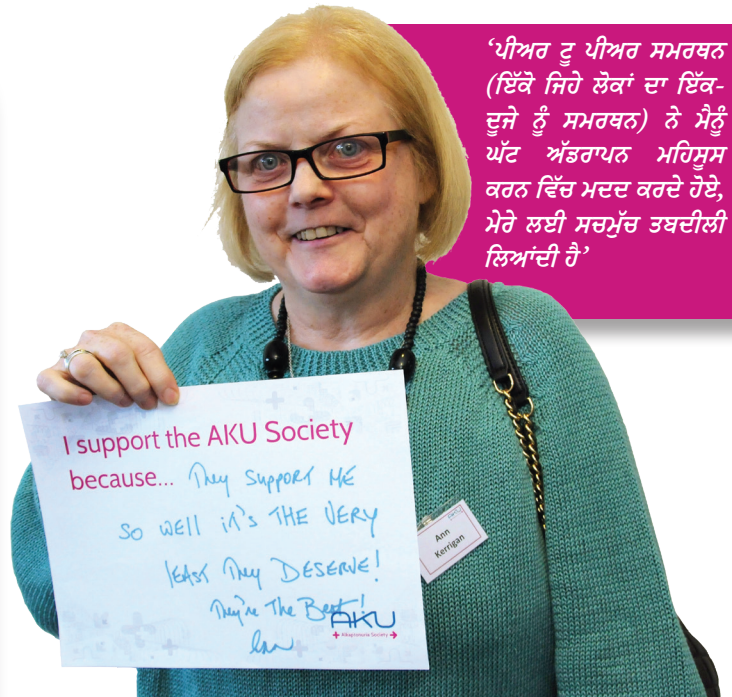 ‘ਪੀਅਰ ਟੂ ਪੀਅਰ ਸਮਰਥਨ
(ਇੱਕੋ ਜਿਹੇ ਲੋਕਾਂ ਦਾ ਇੱਕ-
ਦੂਜੇ ਨੂੰ ਸਮਰਥਨ) ਨੇ ਮੈਨੂੰ
ਘੱਟ ਅੱਡਰਾਪਨ ਮਹਿਸੂਸ
ਕਰਨ ਵਿੱਚ ਮਦਦ ਕਰਦੇ ਹੋਏ,
ਮੇਰੇ ਲਈ ਸਚਮੁੱਚ ਤਬਦੀਲੀ
ਲਿਆਂਦੀ ਹੈ’
I support the AKU Society
because... They SUPPORT ME
SO WELL IT'S THE VERY
LEAST They DESERVE!
They're The Best!
AKU
Alkaptonuria Society
Ann
Ann
Kerrigan